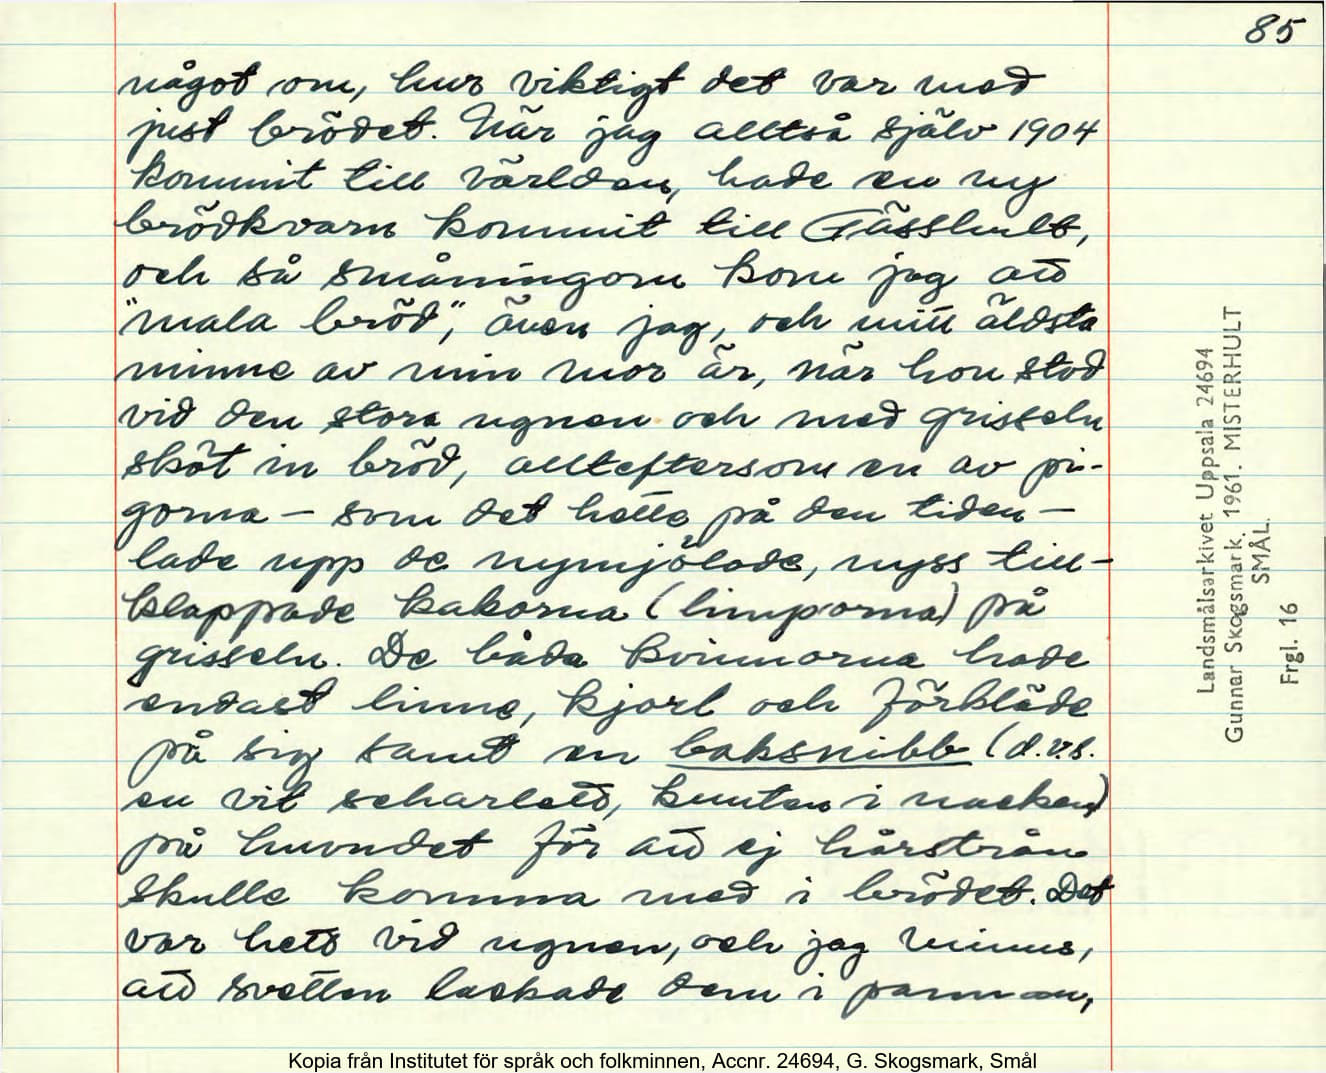 85
något om, hur viktigt det var med
just brödet. När jag alltså själv 1904
kommit till världen, hade en ny
brödkvarn kommit till Gässhult,
och så småningom kom jag att
"mala bröd", även jag, och mitt äldsta
minne av min mor är, när hon stod
vid den stora ugnen och med grisseln
sköt in bröd, allteftersom en av pi-
gorna – som det hette på den tiden –
lade upp de nymjölade, nyss till-
klappade kakorna (limporna) på
grisseln. De båda kvinnorna hade
endast linne, kjorl och förkläde
på sig samt en baksnibb (d.v.s.
en vit scharlett, knuten i nacken)
på huvudet för att ej hårstrån
skulle komma med i brödet. Det
var hett vid ugnen, och jag minns,
att svetten lackade dem i pannan,
Landsmålsarkivet Uppsala 24694
Gunnar Skogsmark. 1961. MISTERHULT
SMÅL.
Frgl. 16
Kopia från Institutet för språk och folkminnen, Accnr. 24694, G. Skogsmark, Smål